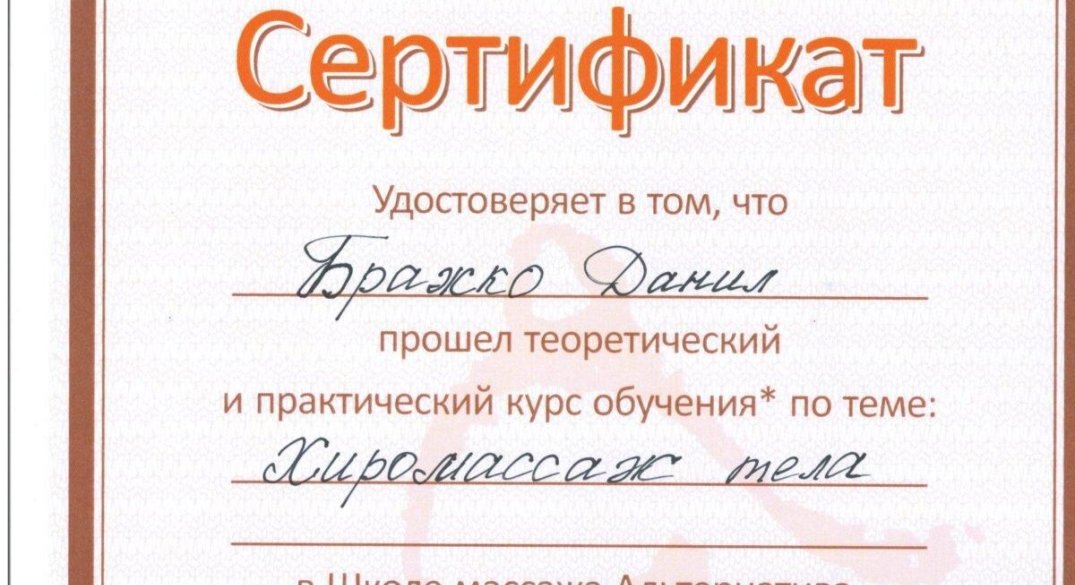 Сертификат
Удостоверяет в том, что
Бражко Данил
прошел теоретический
и практический курс обучения* по теме:
Хиромассаж тела
в Школе массажа Альтернатива